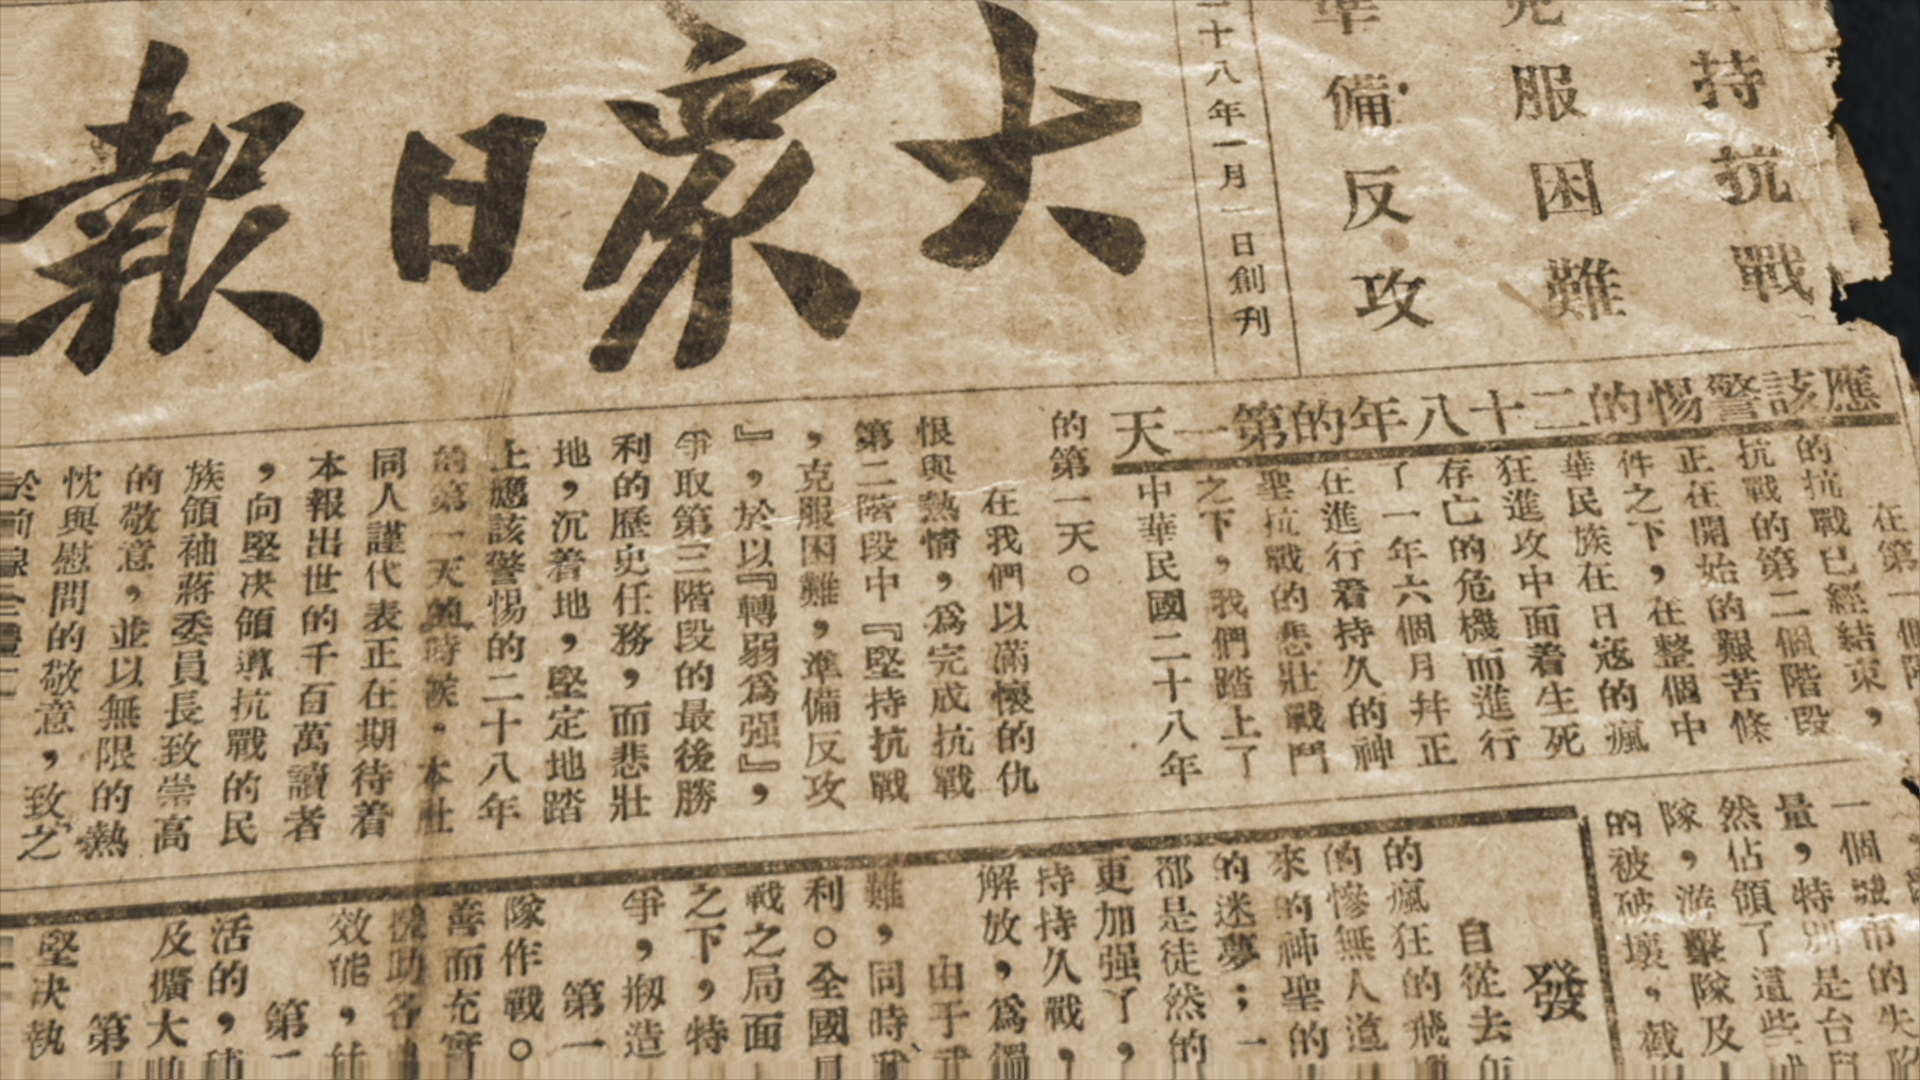 大眾日報
十八年一月一日創刊
持抗戰
服困難
備反攻
應該警惕的二十八年的第一天
在第一個階
的抗戰已經結束，
抗戰的第二個階段
正在開始的艱苦條
件之下，在整個中
華民族在日寇的瘋
狂進攻中面着生死
存亡的危機而進行
了一年六個月幷正
在進行着持久的神
聖抗戰的悲壯戰鬥
之下，我們踏上了
中華民國二十八年
的第一天。
在我們以滿懷的仇
恨與熱情，爲完成抗戰
第二階段中『堅持抗戰
，克服困難，準備反攻
』，於以『轉弱爲强』，
爭取第三階段的最後勝
利的歷史任務，而悲壯
地，沉着地，堅定地踏
上應該警惕的二十八年
的第一天的時候，本社
同人謹代表正在期待着
本報出世的千百萬讀者
，向堅决領導抗戰的民
族領袖蔣委員長致崇高
的敬意，並以無限的熱
忱與慰問的敬意，致之
一個城市的失陷
量，特別是台
然佔領了這些
隊，游擊隊及
的被破壞，截
發
自從去
的瘋狂的飛
的慘無人道
來的神聖的
的迷夢；一
都是徒然的
更加强了，
持持久戰，
解放，爲
由于
難，同時
利。全國
戰之局面
之下，特
爭，剏造
第一
隊作戰。
善而充實
援助各
效能，
第
活的，
及擴大
第
堅决執